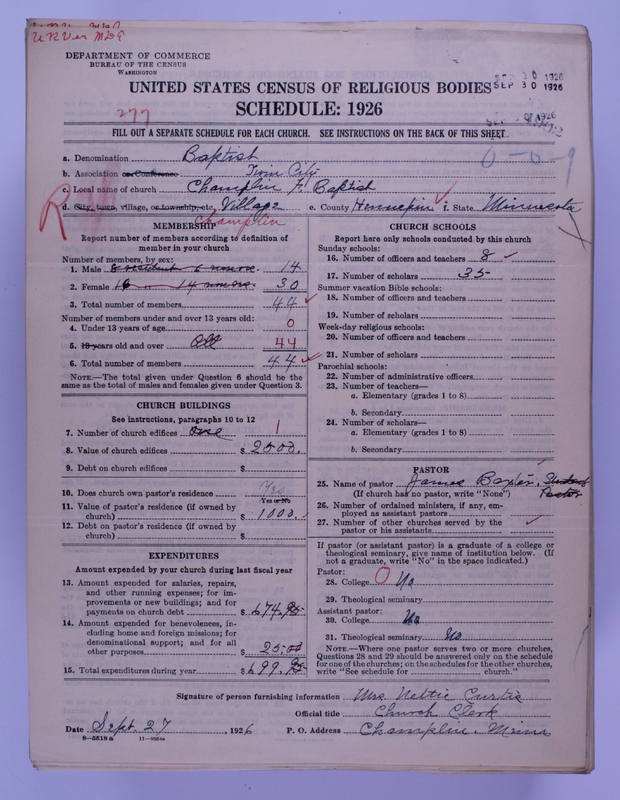 DEPARTMENT OF COMMERCE
BUREAU OF THE CENSUS
WASHINGTON
UNITED STATES CENSUS OF RELIGIOUS BODIES
SEP 30 1926
SCHEDULE: 1926
277
FILL OUT A SEPARATE SCHEDULE FOR EACH CHURCH. SEE INSTRUCTIONS ON THE BACK OF THIS SHEET
a. Denomination Baptist
0-6-9
b. Association or Conference Twin City
c. Local name of church Champlin F. Baptist
d. City, town, village, or township, etc. Village e. County Hennepin f. State Minnesota
Champlin
MEMBERSHIP
Report number of members according to definition of
member in your church
Number of members, by sex:
1. Male 14
2. Female 30
3. Total number of members 44
Number of members under and over 13 years old:
4. Under 13 years of age 0
5. 13 years old and over All 44
6. Total number of members 44
NOTE.—The total given under Question 6 should be the
same as the total of males and females given under Question 3.
CHURCH BUILDINGS
See instructions, paragraphs 10 to 12
7. Number of church edifices one 1
8. Value of church edifices $ 2000.
9. Debt on church edifices $
10. Does church own pastor's residence Yes
Yes or No
11. Value of pastor's residence (if owned by
church) $ 1000.
12. Debt on pastor's residence (if owned by
church) $
EXPENDITURES
Amount expended by your church during last fiscal year
13. Amount expended for salaries, repairs,
and other running expenses; for im-
provements or new buildings; and for
payments on church debt $ 674.95
14. Amount expended for benevolences, in-
cluding home and foreign missions; for
denominational support; and for all
other purposes $ 25.00
15. Total expenditures during year $ 699.95
CHURCH SCHOOLS
Report here only schools conducted by this church
Sunday schools:
16. Number of officers and teachers 8
17. Number of scholars 35
Summer vacation Bible schools:
18. Number of officers and teachers
19. Number of scholars
Week-day religious schools:
20. Number of officers and teachers
21. Number of scholars
Parochial schools:
22. Number of administrative officers
23. Number of teachers—
a. Elementary (grades 1 to 8)
b. Secondary
24. Number of scholars—
a. Elementary (grades 1 to 8)
b. Secondary
PASTOR
25. Name of pastor James Baxter, Student
(If church has no pastor, write "None") Pastor
26. Number of ordained ministers, if any, em-
ployed as assistant pastors
27. Number of other churches served by the
pastor or his assistants
If pastor (or assistant pastor) is a graduate of a college or
theological seminary, give name of institution below. (If
not a graduate, write "No" in the space indicated.)
Pastor:
28. College O No
29. Theological seminary
Assistant pastor:
30. College No
31. Theological seminary No
NOTE.—Where one pastor serves two or more churches,
Questions 28 and 29 should be answered only on the schedule
for one of the churches; on the schedules for the other churches,
write "See schedule for church."
Signature of person furnishing information Mrs Nettie Curtis
Official title Church Clerk
Date Sept. 27, 1926 P. O. Address Champlin. Minn
8—5518 a